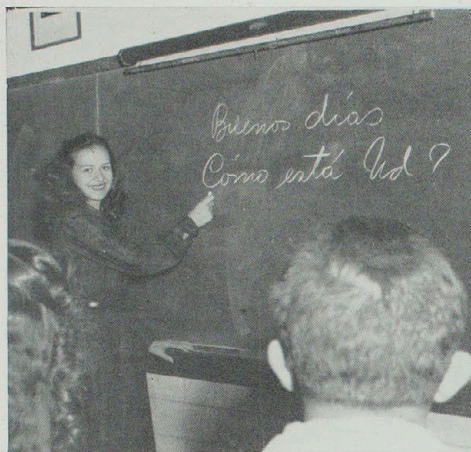 Buenos días
Cómo está Ud ?